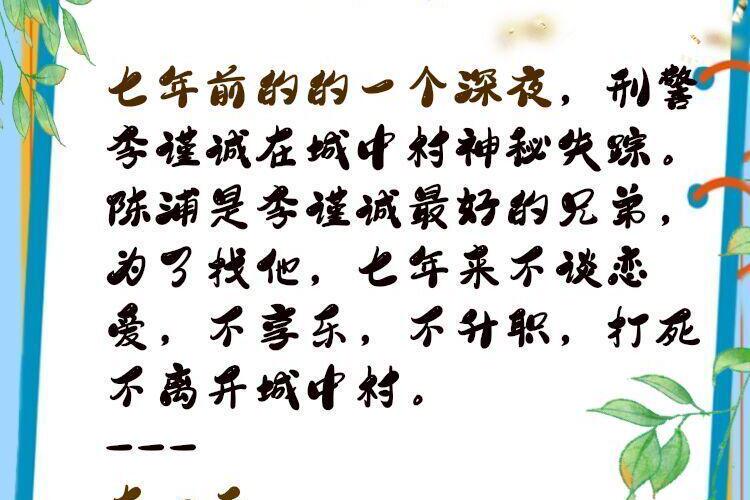 七年前的的一个深夜，刑警
李谨诚在城中村神秘失踪。
陈浦是李谨诚最好的兄弟，
为了找他，七年来不谈恋
爱，不享乐，不升职，打死
不离开城中村。
---